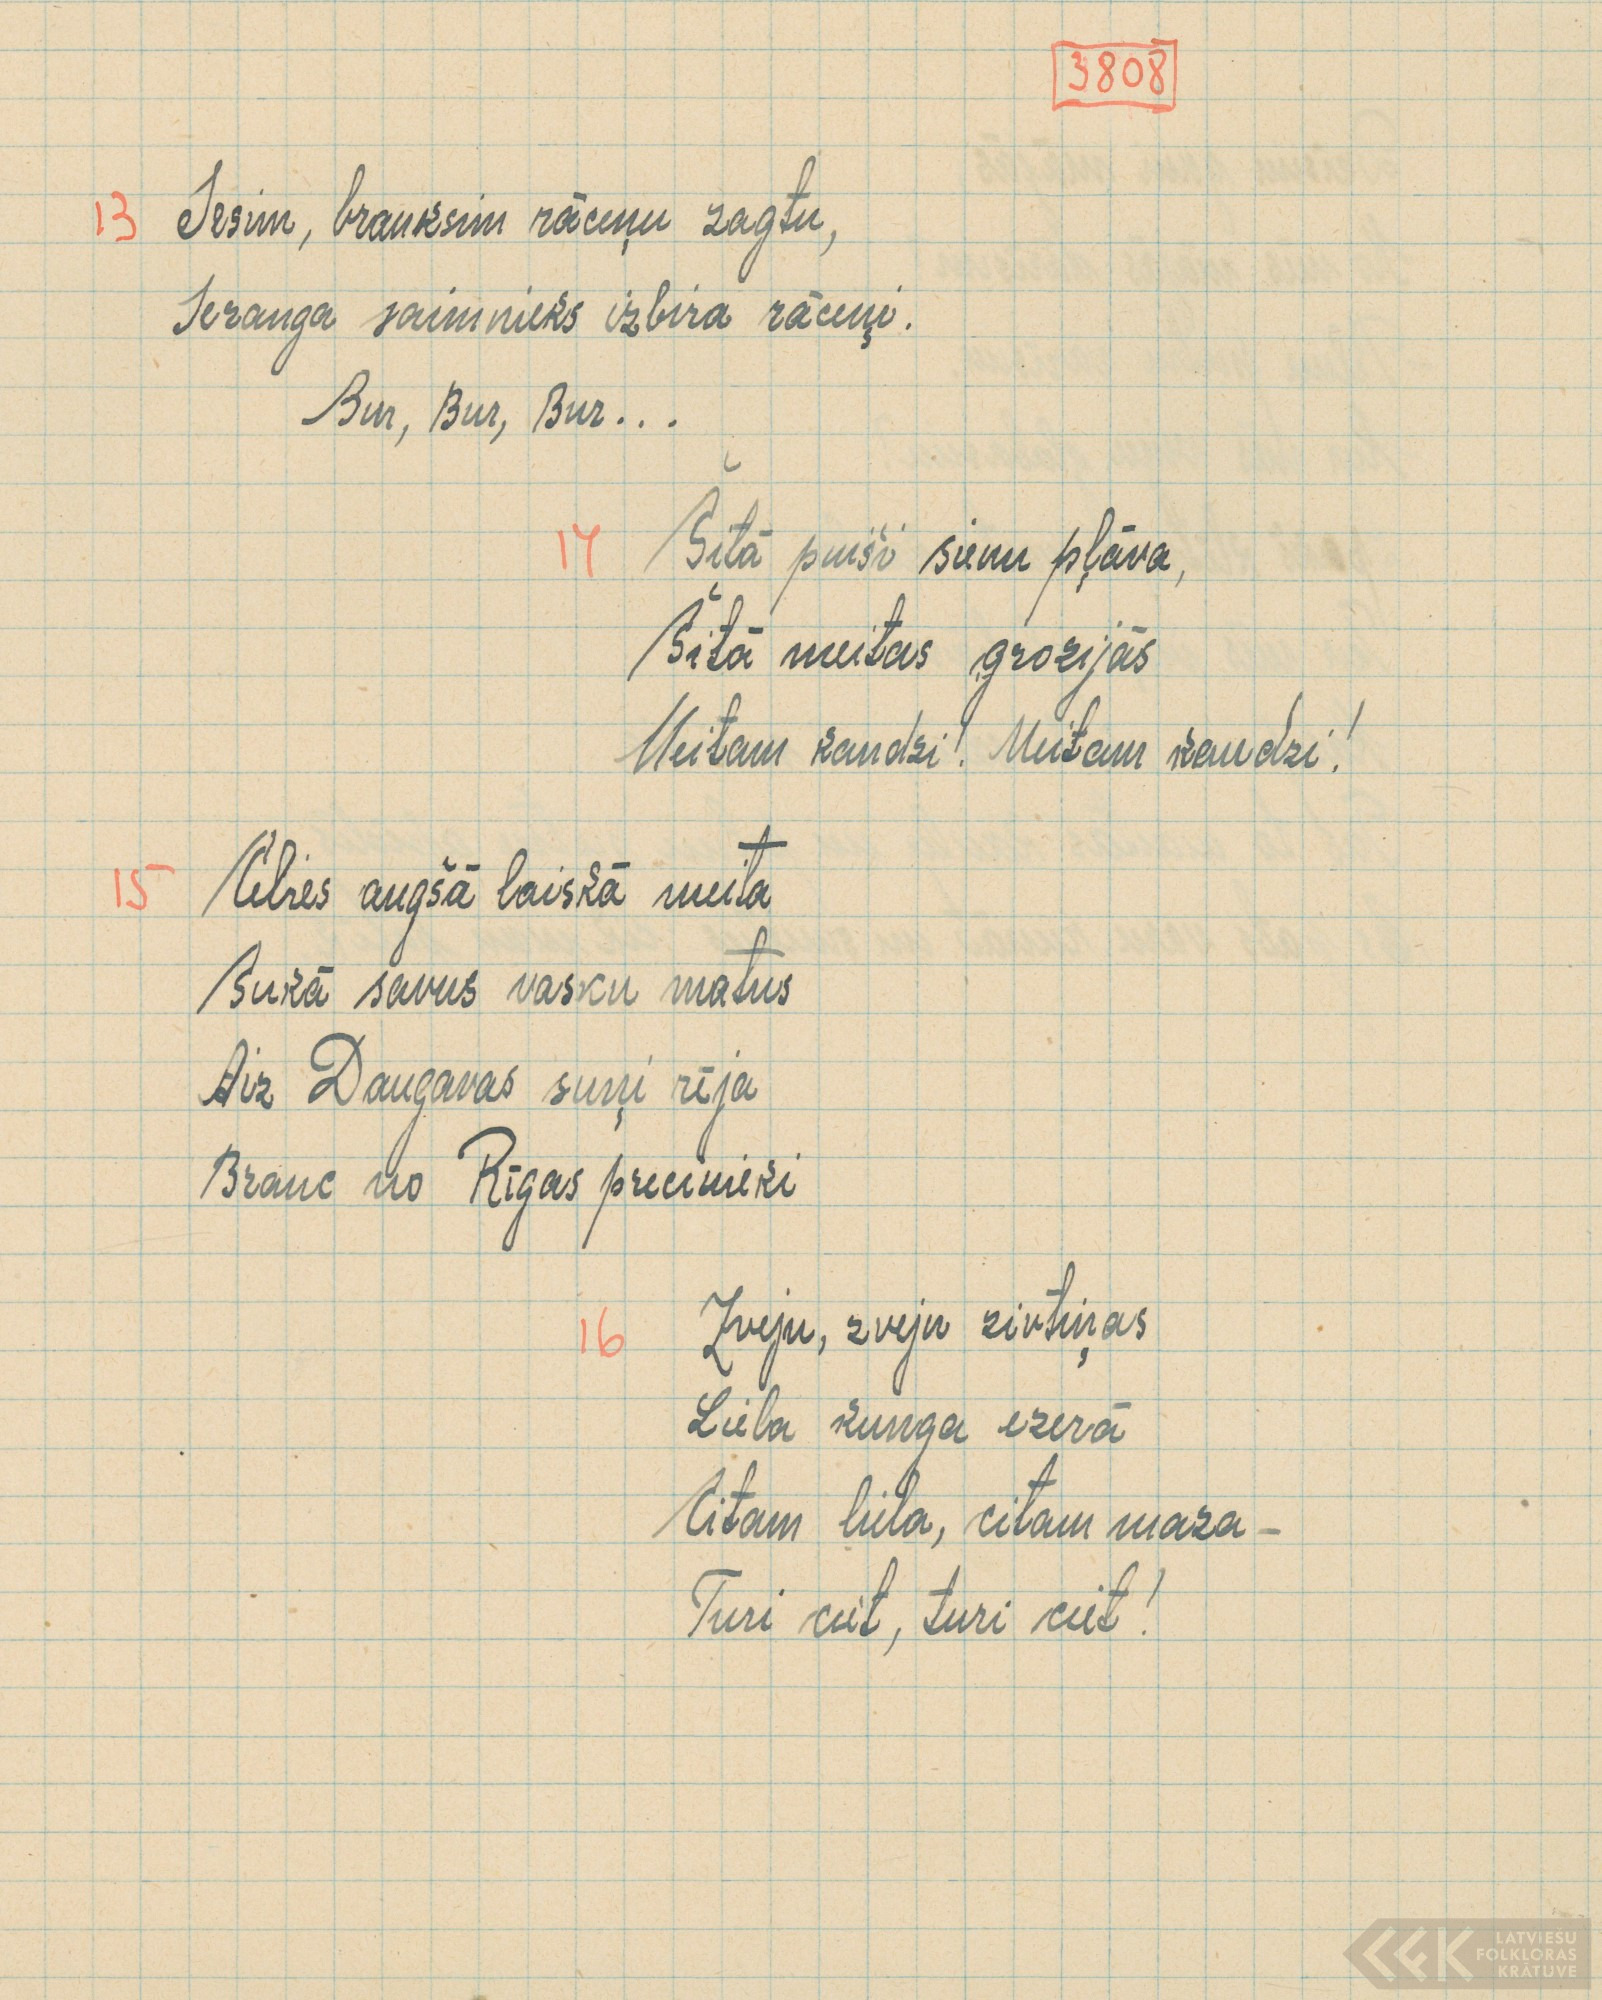 3808
13 Iesim, brauksim rāceņu zagtu,
Ieranga saimnieks izbira rāceņi.
Bur, Bur, Bur...
14 Šitā puiši sienu pļāva,
Šitā meitas grozijās
Meitam kaudzi! Meitam kaudzi!
15 Celies augšā laiskā meita
Sukā savus vasku matus
Aiz Daugavas suņi rēja
Brauc no Rīgas precinieki
16 Zveju, zveju zivtiņas
Liela kunga ezerā
Citam liela, citam maza –
Turi ciet, turi ciet!
LATVIEŠU
FOLKLORAS
KRĀTUVE